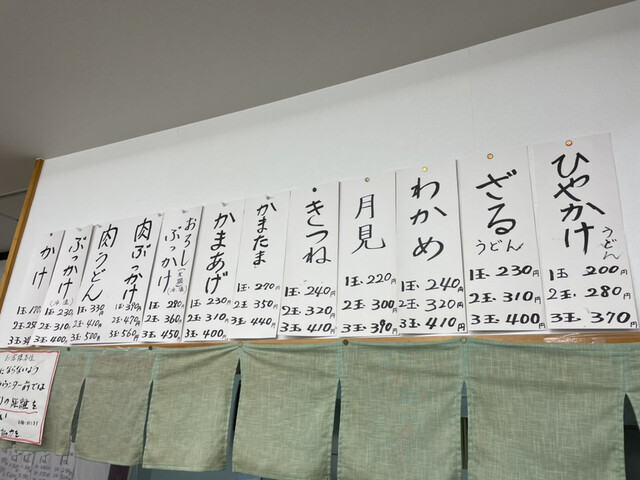 ひやかけ
うどん
1玉 200円
2玉. 280円
3玉. 370円
ざる
うどん
1玉. 230円
2玉. 310円
3玉. 400円
わかめ
1玉. 240円
2玉. 320円
3玉. 410円
月見
1玉. 220円
2玉. 300円
3玉. 390円
きつね
1玉. 240円
2玉. 320円
3玉. 410円
かまたま
1玉. 270円
2玉. 350円
3玉. 440円
かまあげ
1玉. 230円
2玉. 310円
3玉. 400円
おろし
ぶっかけ
1玉. 280円
2玉. 360円
3玉. 450円
肉ぶっかけ
1玉. 390円
2玉. 470円
3玉. 560円
肉うどん
1玉. 330円
2玉. 410円
3玉. 500円
ぶっかけ
1玉. 230円
2玉. 310円
3玉. 400円
かけ
1玉.
2玉.
3玉.
にならないよう
カウンター前では
の距離を